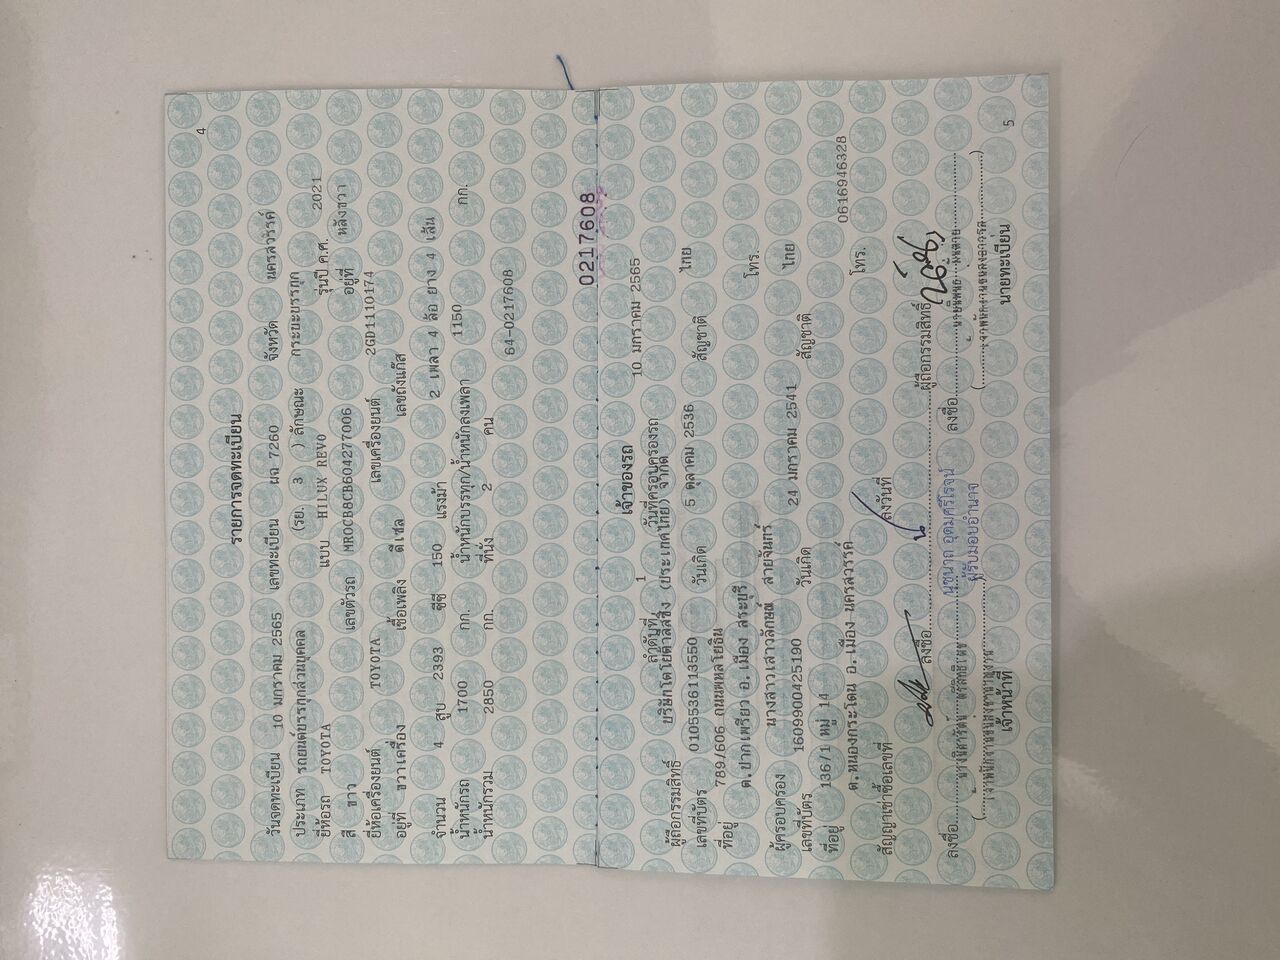 4
รายการจดทะเบียน
วันจดทะเบียน 10 มกราคม 2565 เลขทะเบียน ผฉ 7260 จังหวัด นครสวรรค์
ประเภท รถยนต์บรรทุกส่วนบุคคล (รย. 3 ) ลักษณะ กระบะบรรทุก
ยี่ห้อรถ TOYOTA แบบ HILUX REVO รุ่นปี ค.ศ. 2021
สี ขาว เลขตัวรถ MR0CB8CB604277006 อยู่ที่ หลังขวา
ยี่ห้อเครื่องยนต์ TOYOTA เลขเครื่องยนต์ 2GD1110174
อยู่ที่ ขวาเครื่อง เชื้อเพลิง ดีเซล เลขถังแก๊ส
จำนวน 4 สูบ 2393 ซีซี 150 แรงม้า 2 เพลา 4 ล้อ ยาง 4 เส้น
น้ำหนักรถ 1700 กก. น้ำหนักบรรทุก/น้ำหนักลงเพลา 1150 กก.
น้ำหนักรวม 2850 กก. ที่นั่ง 2 คน
64-0217608
0217608
เจ้าของรถ
ลำดับที่ 1 วันที่ครอบครองรถ 10 มกราคม 2565
ผู้ถือกรรมสิทธิ์ บริษัทโตโยต้าลีสซิ่ง (ประเทศไทย) จำกัด
เลขที่บัตร 0105536113550 วันเกิด 5 ตุลาคม 2536 สัญชาติ ไทย
ที่อยู่ 789/606 ถนนพหลโยธิน
ต.ปากเพรียว อ.เมือง สระบุรี โทร.
ผู้ครอบครอง นางสาวเสาวลักษณ์ สายจันทร์
เลขที่บัตร 1609900425190 วันเกิด 24 มกราคม 2541 สัญชาติ ไทย
ที่อยู่ 136/1 หมู่ 14
ต.หนองกระโดน อ.เมือง นครสวรรค์ โทร. 0616946328
สัญญาเช่าซื้อเลขที่ ลงวันที่
ลงชื่อ ผู้ถือกรรมสิทธิ์
นุชนาถ อุดมศรีโรจน์
ผู้รับมอบอำนาจ
ลงชื่อ ลงชื่อ
เจ้าหน้าที่ นายทะเบียน
5